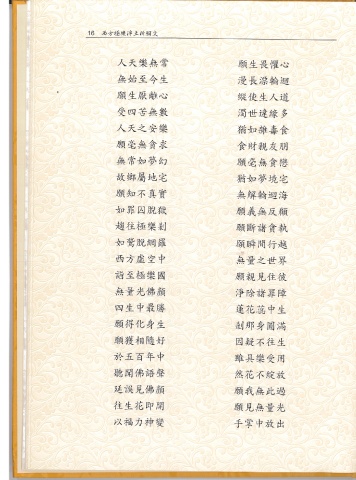 16 西方極樂淨土祈願文
人天樂無常 願生畏懼心
無始至今生 漫長漂輪迴
願生厭離心 縱使生人道
受四苦無數 濁世違緣多
人天之安樂 猶如雜毒食
願毫無貪求 食財親友朋
無常如夢幻 願毫無貪戀
故鄉屬地宅 猶如夢境宅
願知不真實 無解輪迴海
如罪囚脫獄 願義無反顧
趨往極樂剎 願斷諸貪執
如鷲脫網羅 願瞬間行越
西方虛空中 無量之世界
詣至極樂國 願親見住彼
無量光佛顏 淨除諸罪障
四生中最勝 蓮花蕊中生
願得化身生 剎那身圓滿
願獲相隨好 因疑不往生
於五百年中 雖具樂受用
聽聞佛語聲 然花不綻放
延誤見佛顏 願我無此過
往生花即開 願見無量光
以福力神變 手掌中放出